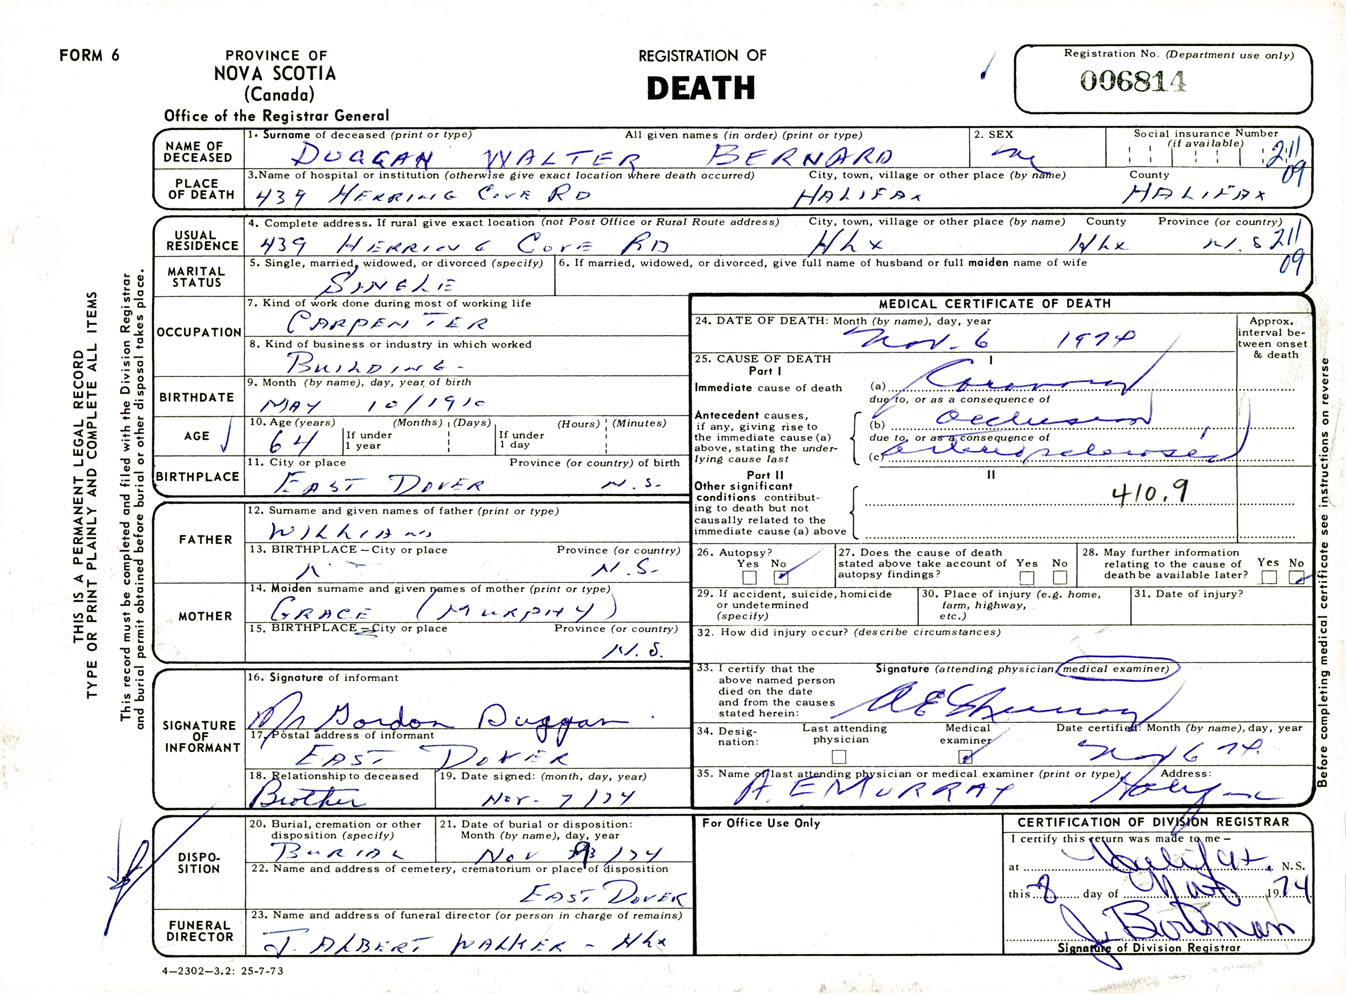 FORM 6
PROVINCE OF
NOVA SCOTIA
(Canada)
Office of the Registrar General
REGISTRATION OF
DEATH
Registration No. (Department use only)
006814
THIS IS A PERMANENT LEGAL RECORD
TYPE OR PRINT PLAINLY AND COMPLETE ALL ITEMS
This record must be completed and filed with the Division Registrar
and burial permit obtained before burial or other disposal takes place.
NAME OF
DECEASED
1. Surname of deceased (print or type) All given names (in order) (print or type)
DUGGAN WALTER BERNARD
2. SEX
M
Social insurance Number
(if available)
211
09
PLACE
OF DEATH
3. Name of hospital or institution (otherwise give exact location where death occurred) City, town, village or other place (by name) County
439 HERRING COVE RD HALIFAX HALIFAX
USUAL
RESIDENCE
4. Complete address. If rural give exact location (not Post Office or Rural Route address) City, town, village or other place (by name) County Province (or country)
439 HERRING COVE RD Hfx Hfx N.S 211
09
MARITAL
STATUS
5. Single, married, widowed, or divorced (specify)
SINGLE
6. If married, widowed, or divorced, give full name of husband or full maiden name of wife
OCCUPATION
7. Kind of work done during most of working life
CARPENTER
8. Kind of business or industry in which worked
BUILDING
BIRTHDATE
9. Month (by name), day, year of birth
MAY 10/1910
AGE
10. Age (years) (Months) (Days) (Hours) (Minutes)
64
If under
1 year
If under
1 day
BIRTHPLACE
11. City or place Province (or country) of birth
EAST DOVER N.S.
FATHER
12. Surname and given names of father (print or type)
WILLIAM
13. BIRTHPLACE – City or place Province (or country)
N.S.
MOTHER
14. Maiden surname and given names of mother (print or type)
GRACE (MURPHY)
15. BIRTHPLACE – City or place Province (or country)
N.S.
SIGNATURE
OF
INFORMANT
16. Signature of informant
Mr Gordon Duggan
17. Postal address of informant
EAST DOVER
18. Relationship to deceased
Brother
19. Date signed: (month, day, year)
Nov. 7/74
DISPO-
SITION
20. Burial, cremation or other
disposition (specify)
BURIAL
21. Date of burial or disposition:
Month (by name), day, year
Nov /74
22. Name and address of cemetery, crematorium or place of disposition
EAST DOVER
FUNERAL
DIRECTOR
23. Name and address of funeral director (or person in charge of remains)
J. ALBERT WALKER – Hfx
4—2302—3.2: 25-7-73
MEDICAL CERTIFICATE OF DEATH
24. DATE OF DEATH: Month (by name), day, year
Nov. 6 1974
Approx.
interval be-
tween onset
& death
25. CAUSE OF DEATH
Part I
I
Immediate cause of death (a) Coronary
due to, or as a consequence of
Antecedent causes,
if any, giving rise to
the immediate cause (a)
above, stating the under-
lying cause last
(b) occlusion
due to, or as a consequence of
(c) arteriosclerosis
Part II
II
Other significant
conditions contribut-
ing to death but not
causally related to the
immediate cause (a) above
410.9
26. Autopsy?
Yes No
27. Does the cause of death
stated above take account of
autopsy findings?
Yes No
28. May further information
relating to the cause of
death be available later?
Yes No
29. If accident, suicide, homicide
or undetermined
(specify)
30. Place of injury (e.g. home,
farm, highway,
etc.)
31. Date of injury?
32. How did injury occur? (describe circumstances)
33. I certify that the
above named person
died on the date
and from the causes
stated herein:
Signature (attending physician, medical examiner)
A E Murray
34. Desig-
nation:
Last attending
physician
Medical
examiner
Date certified: Month (by name), day, year
Nov 6 74
35. Name of last attending physician or medical examiner (print or type) Address:
A. E MURRAY Halifax
For Office Use Only
CERTIFICATION OF DIVISION REGISTRAR
I certify this return was made to me –
at Halifax, N.S.
this 8 day of Nov 1974
J. Bowman
Signature of Division Registrar
Before completing medical certificate see instructions on reverse